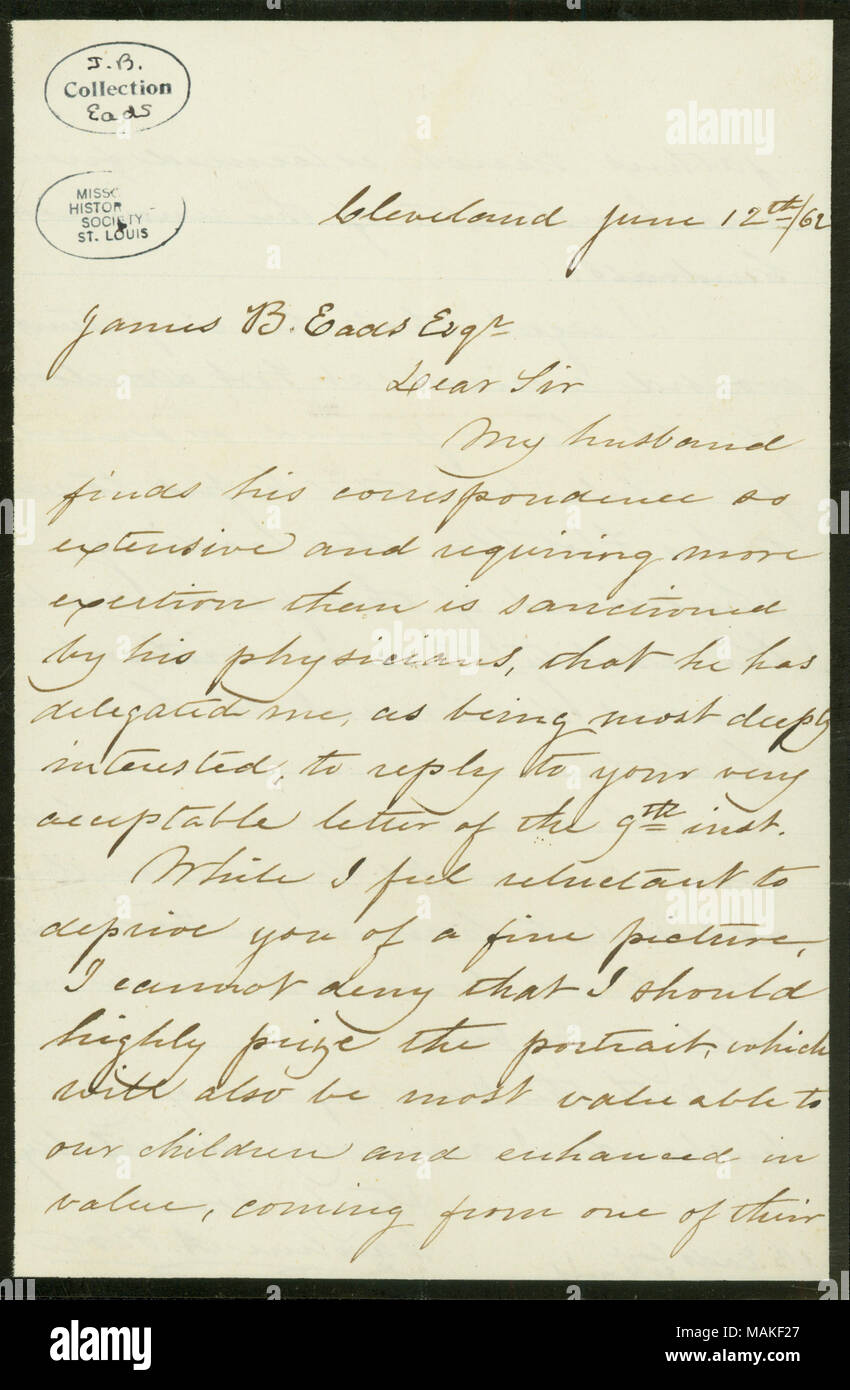 J. B.
Collection
Eads
MISSO
HISTOR
SOCIETY
ST. LOUIS
Cleveland June 12th/62
James B. Eads Esqr
Dear Sir
My husband
finds his correspondence so
extensive and requiring more
exertion than is sanctioned
by his physicians, that he has
delegated me, as being most deeply
interested, to reply to your very
acceptable letter of the 9th inst.
While I feel reluctant to
deprive you of a fine picture,
I cannot deny that I should
highly prize the portrait, which
will also be most valueable to
our children and enhanced in
value, coming from one of their
alamy
Image ID: MAKF27
www.alamy.com